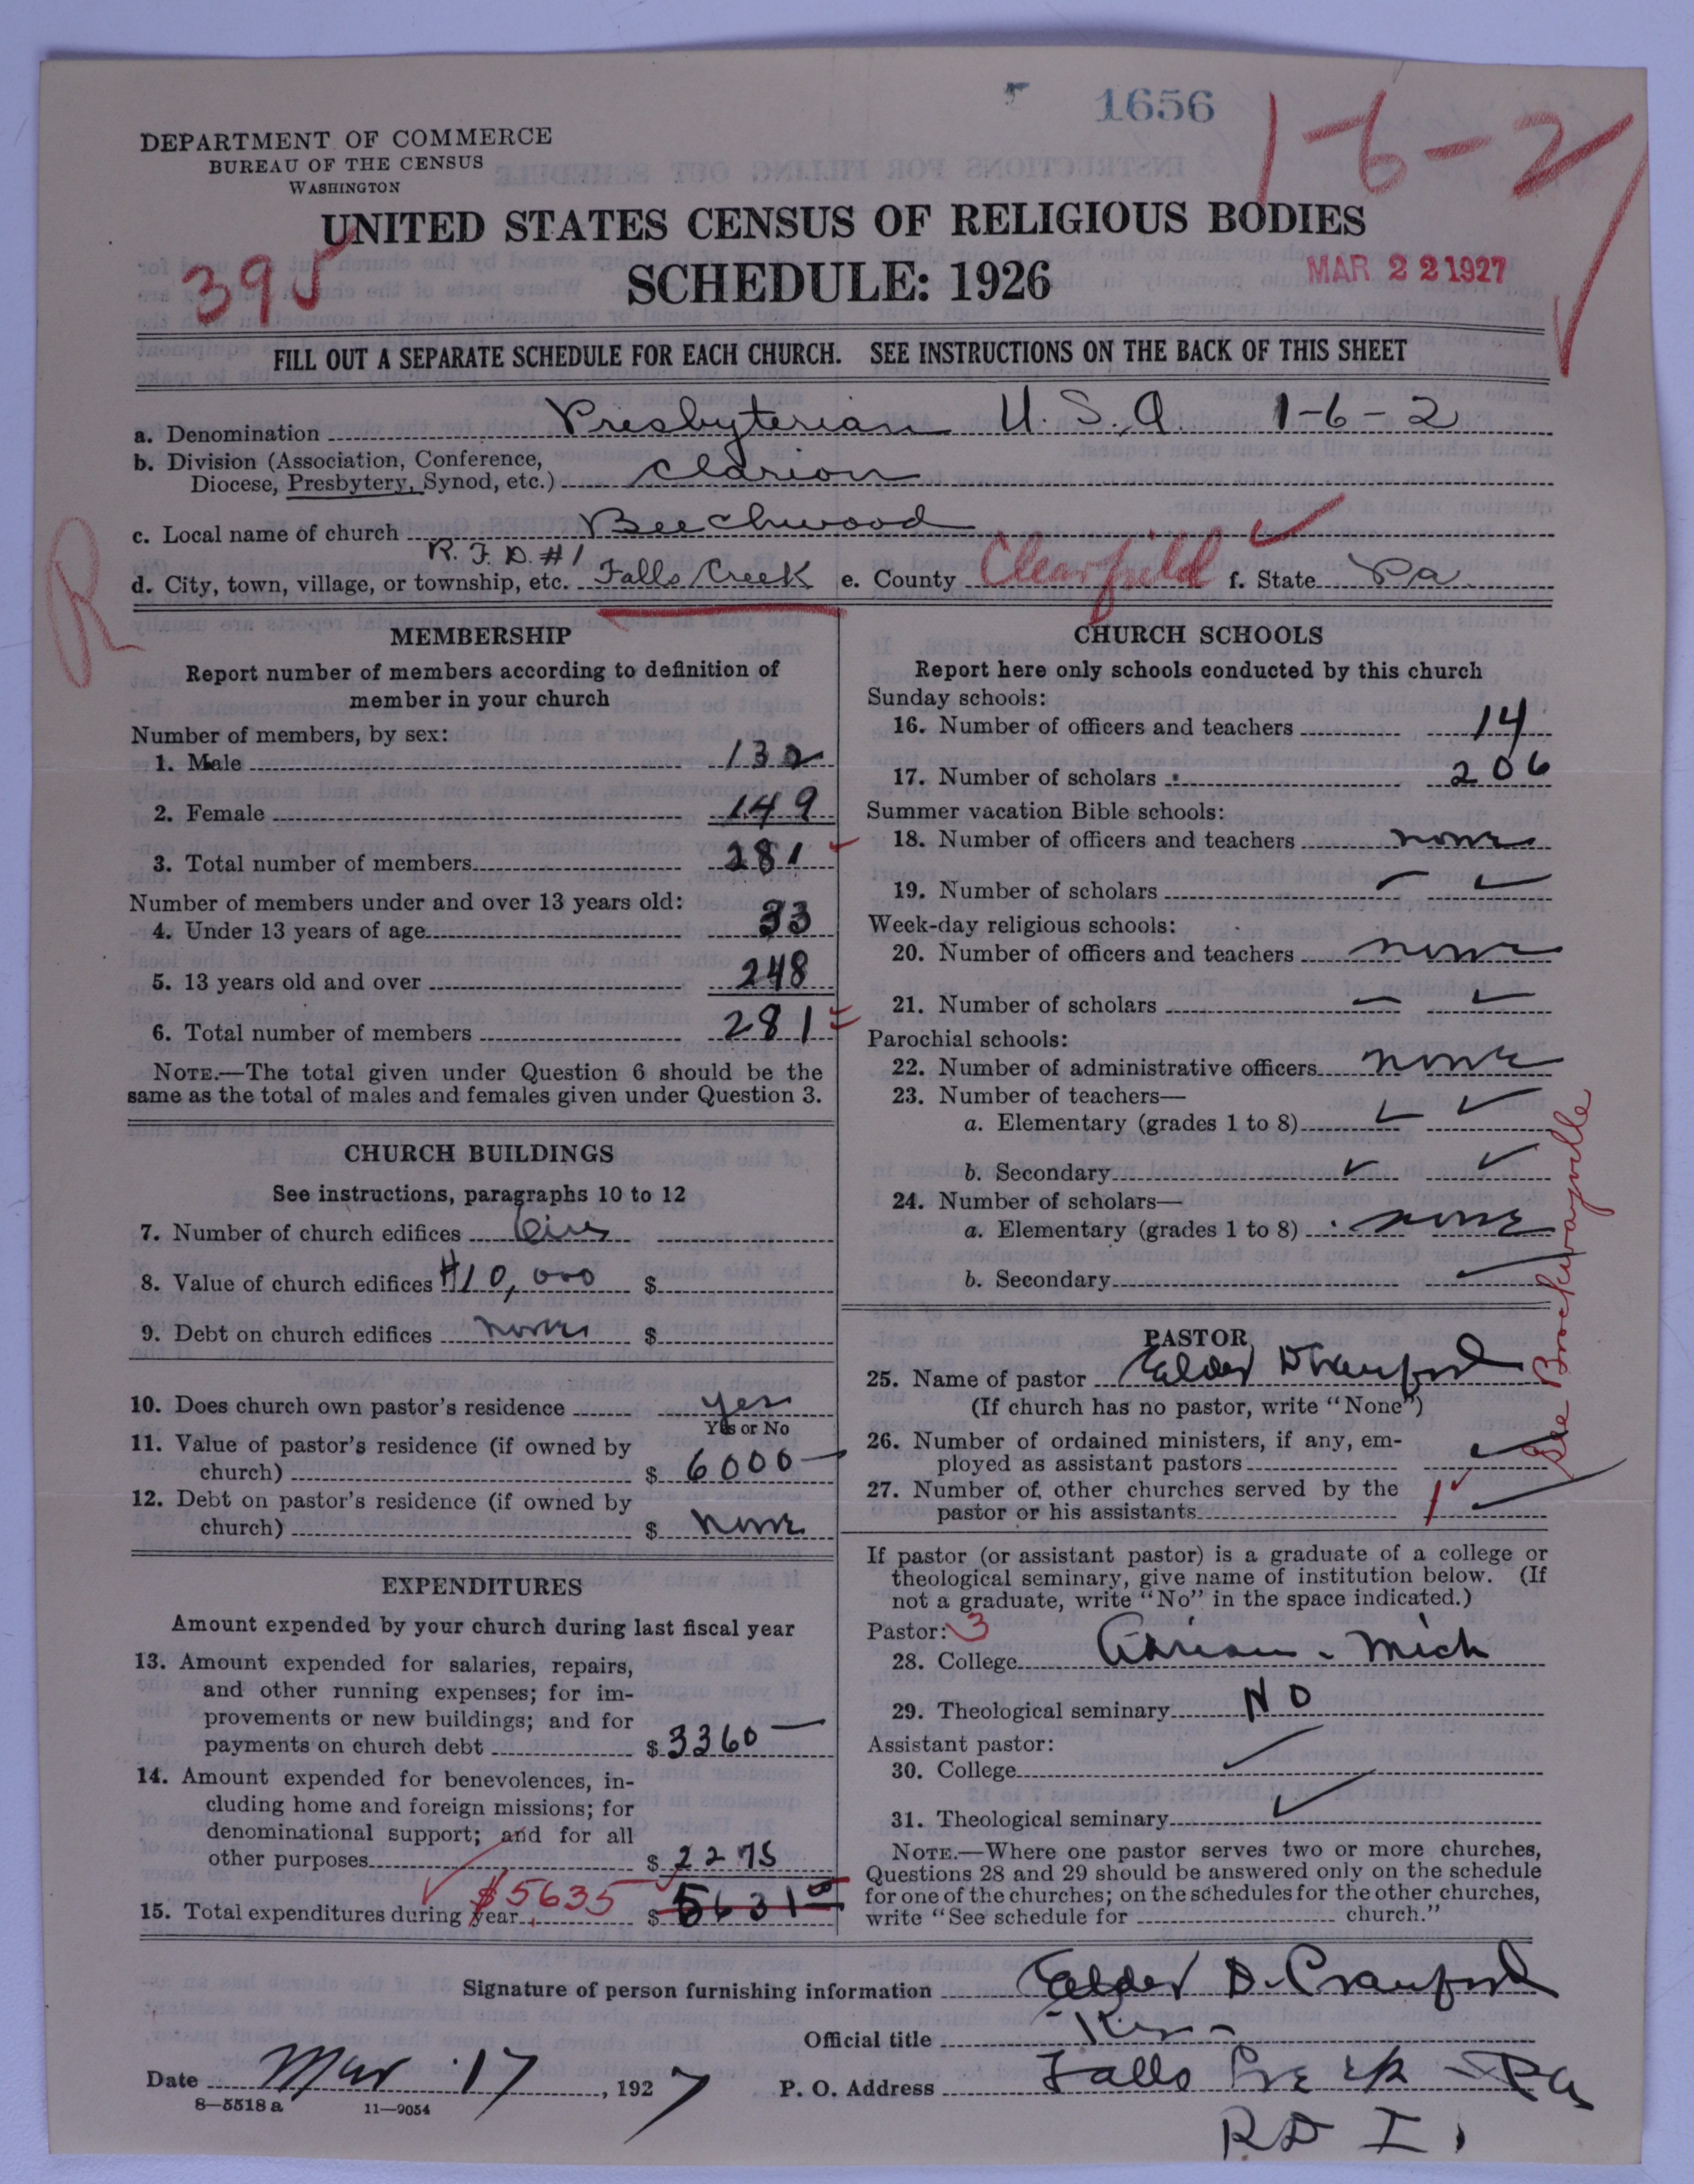 1656
1-6-2
DEPARTMENT OF COMMERCE
BUREAU OF THE CENSUS
WASHINGTON
UNITED STATES CENSUS OF RELIGIOUS BODIES
395
SCHEDULE: 1926
MAR 22 1927
FILL OUT A SEPARATE SCHEDULE FOR EACH CHURCH. SEE INSTRUCTIONS ON THE BACK OF THIS SHEET
a. Denomination Presbyterian U.S.A. 1-6-2
b. Division (Association, Conference,
Diocese, Presbytery, Synod, etc.) Clarion
c. Local name of church Beechwood
R.F.D. #1
d. City, town, village, or township, etc. Falls Creek e. County Clearfield f. State Pa
R
MEMBERSHIP
Report number of members according to definition of
member in your church
Number of members, by sex:
1. Male 132
2. Female 149
3. Total number of members 281
Number of members under and over 13 years old:
4. Under 13 years of age 33
5. 13 years old and over 248
6. Total number of members 281
NOTE.—The total given under Question 6 should be the
same as the total of males and females given under Question 3.
CHURCH BUILDINGS
See instructions, paragraphs 10 to 12
7. Number of church edifices
8. Value of church edifices $10,000 $
9. Debt on church edifices none $
10. Does church own pastor's residence yes
Yes or No
11. Value of pastor's residence (if owned by
church) $ 6000
12. Debt on pastor's residence (if owned by
church) $ none
EXPENDITURES
Amount expended by your church during last fiscal year
13. Amount expended for salaries, repairs,
and other running expenses; for im-
provements or new buildings; and for
payments on church debt $ 3360
14. Amount expended for benevolences, in-
cluding home and foreign missions; for
denominational support; and for all
other purposes $ 2275
15. Total expenditures during year $5635 $ 5631
CHURCH SCHOOLS
Report here only schools conducted by this church
Sunday schools:
16. Number of officers and teachers 14
17. Number of scholars 206
Summer vacation Bible schools:
18. Number of officers and teachers none
19. Number of scholars
Week-day religious schools:
20. Number of officers and teachers none
21. Number of scholars
Parochial schools:
22. Number of administrative officers none
23. Number of teachers—
a. Elementary (grades 1 to 8)
b. Secondary
24. Number of scholars—
a. Elementary (grades 1 to 8) none
b. Secondary
See Brockwayville
PASTOR
25. Name of pastor Elder D Cranford
(If church has no pastor, write "None")
26. Number of ordained ministers, if any, em-
ployed as assistant pastors
27. Number of other churches served by the
pastor or his assistants 1
If pastor (or assistant pastor) is a graduate of a college or
theological seminary, give name of institution below. (If
not a graduate, write "No" in the space indicated.)
Pastor: 3
28. College Adrian - Mich
29. Theological seminary NO
Assistant pastor:
30. College
31. Theological seminary
NOTE.—Where one pastor serves two or more churches,
Questions 28 and 29 should be answered only on the schedule
for one of the churches; on the schedules for the other churches,
write "See schedule for church."
Signature of person furnishing information Elder D. Cranford
Official title
Date Mar 17, 1927 P. O. Address Falls Creek - Pa
8—5518 a 11—9054
RD I